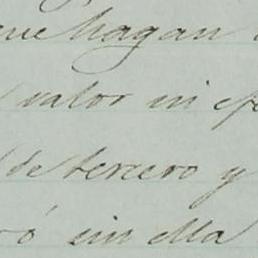 que hagan
valor in
de tercero y
ó sin ella